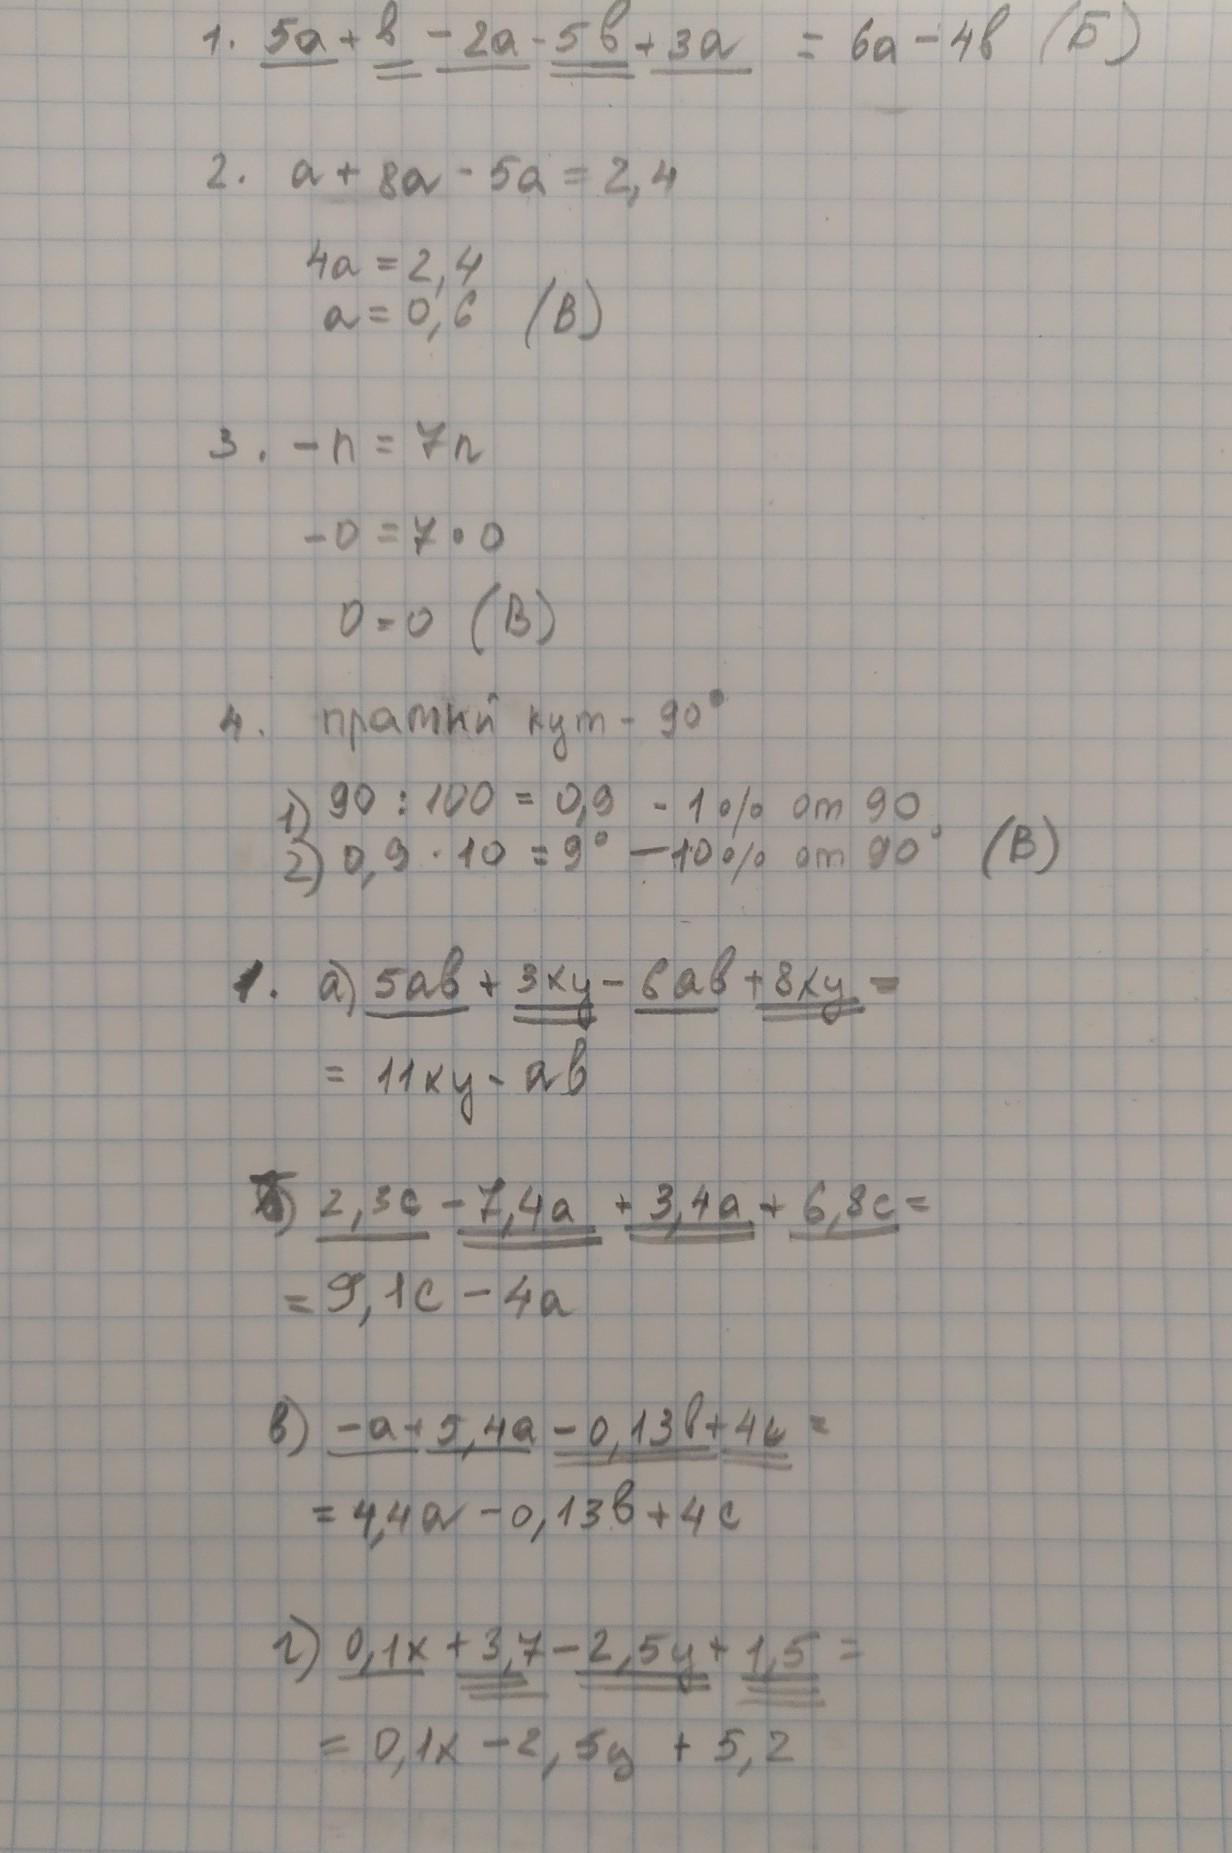 1. 5a + в - 2a - 5в + 3a = 6a - 4в (Б)
2. a + 8a - 5a = 2,4
4a = 2,4
a = 0,6 (В)
3. -n = 7n
-0 = 7 • 0
0 = 0 (В)
4. пратий кут - 90°
1) 90 : 100 = 0,9 - 1% от 90
2) 0,9 · 10 = 9° - 10% от 90° (В)
1. а) 5ав + 3xy - 6ав + 8xy =
= 11xy - ав
б) 2,3c - 7,4a + 3,4a + 6,8c =
= 9,1c - 4a
в) -a + 5,4a - 0,13в + 4c =
= 4,4a - 0,13в + 4c
г) 0,1x + 3,7 - 2,5y + 1,5 =
= 0,1x - 2,5y + 5,2